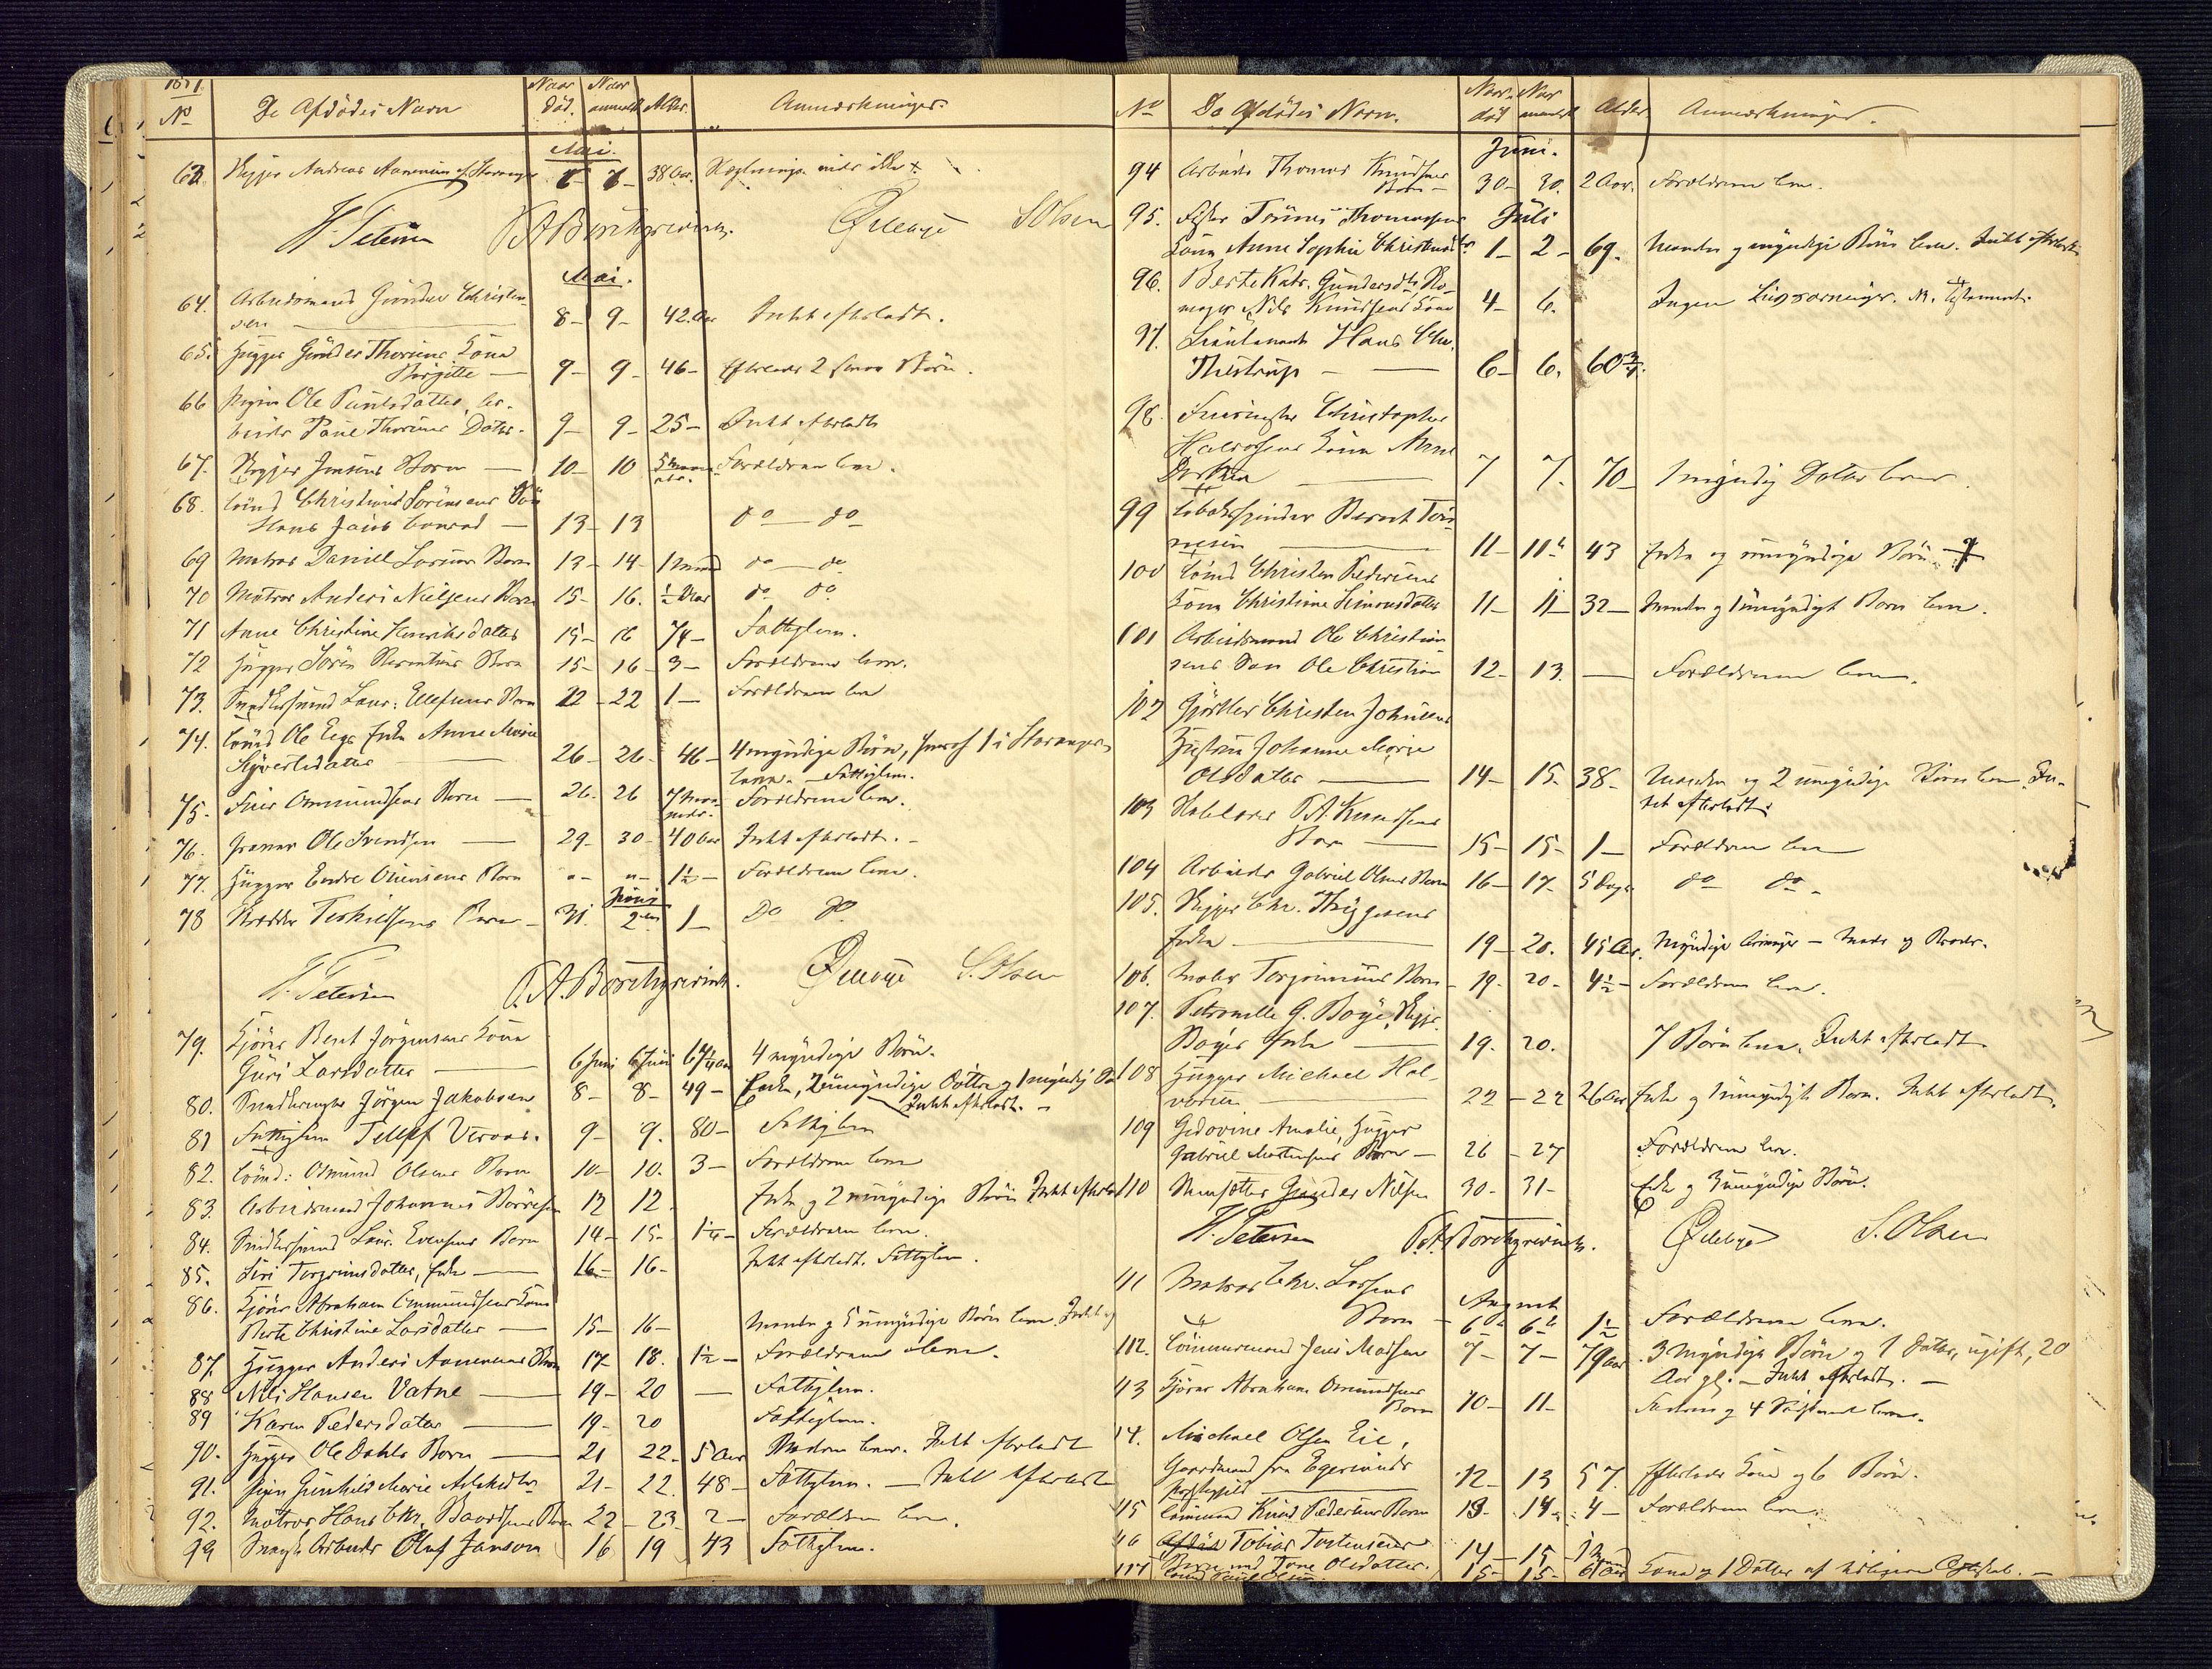 1871.
No De Afdødes Navn Naar død. Naar anmeldt Alder. Anmærkninger.
Mai.
63. Skipper Andreas Aanensen af Stavanger 6- 7- 38 Aar.
H. Petersen T. A. Borchgrevink. Qvelbye S. Olsen
Mai.
64. Arbeidsmand Gunder Christen-
sen 8- 9- 42 Aar Intet efterladt.
65. Hugger Gunder Thorsens Kone
Birgitte 9- 9- 46- Efterlader 2 smaa Børn.
66 Pigen Ole Paulsdatter, Ar-
beider Paul Thorsens Datter. 9- 9- 25- Intet efterladt
67. Skipper Jensens Barn 10- 10 5 Maaneder. Forældrene lever.
68. Lømd Christian Sørensens Søn
Hans Jacob Conrad 13- 13 do do
69 Matros Daniel Larsens Barn 13- 14- 1 Maaned do do
70 Matros Anders Nielsens Barn 15- 16. ½ Aar do do
71 Anne Christine Henriksdatter 15- 16 74- Fattiglem.
72 Hugger Søren Berentsens Barn 15- 16- 3- Forældrene lever.
73. Snedkersvend Laur: Ellefsens Barn 22- 22 1- Forældrene lever
74. Lømd Ole Eeges Enke Anne Marie
Syvertsdatter 26- 26- 46- 4 myndige Børn, hvoraf 1 i Stavanger
lever. - Fattiglem.
75. Fuer Ommundsens Barn 26. 26 7 Maaneder. Forældrene lever.
76. Graver Ole Svendsen 29- 30- 40 Aar Intet efterladt. -
77. Hugger Endre Olsens Barn "- "- 1½- Forældrene lever.
Juni
78 Bødker Terkildsens Barn - 31. 2den 1- Do Do
H. Petersen T. A. Borchgrevink. Qvelbye S. Olsen
79. Kjører Bent Jørgensens Kone
Guri Larsdatter 6 Juni 6 Juni 64 Aar 4 myndige Børn.
80. Snedkermester Jørgen Jakobsen 8- 8- 49- Enke, 2 umyndige Døttre og 1 myndig Do
Intet efterladt. -
81 Fattiglem Tellef Veraas. 9- 9. 80- Fattiglem
82. Lømd: Osmund Olsens Barn 10- 10. 3- Forældrene lever
83. Arbeidsmand Johannes Børresen 12 12. Enke og 2 umyndige Børn Intet efterladt
84. Snedkersvend Laur. Evensens Barn 14- 15- 1¼- Forældrene lever.
85. Siri Torgrimsdatter, Enke 16- 16- Intet efterladt. Fattiglem.
86. Kjører Abraham Ommundsens Kone
Berte Christine Larsdatter 15- 16- Manden og 5 umyndige Børn lever.
87. Hugger Anders Aanensens Barn 17- 18. 1½- Forældrene lever.
88 Nils Hansen Vatne 19- 20 — Fattiglem.
89 Karen Pedersdatter 19- 20 Fattiglem.
90. Hugger Ole Dahls Barn 21 22. 5 Aar Moderen lever. Intet efterladt
91. Pigen Gunhild Marie 21- 22. 48- Fattiglem. — Intet efterladt
92. Matros Hans Chr. Baardsens Barn 22- 23- 2- Forældrene lever.
93 Svensk Arbeider Oluf Janson 16 19 43 Fattiglem.
No De Afdødes Navn. Naar død Naar anmeldt Alder Anmærkninger.
Juni.
94 Arbeider Thomas Knudsens
Barn - 30- 30. 2 Aar. Forældrene lever.
95. Fisker Tønnes Thomassens Juli
Kone Anne Sophie Christensdtr 1- 2- 69. Manden og myndige Børn lever. Intet efterladt
96. Berte Katr. Gundersdtr Sko-
mager Nils Knudsens Kone 4- 6. Ingen Livsarvinger. Testament.
97. Lieutenant Hans Chr.
Thestrup 6- 6. 60¾.
98. Christopher
Halvorsens Kone Anne
Dorthea 7 7. 70- 1 myndig Datter lever.
99 Tobakspinder Berent Tøn-
nesen 11- 11te 43 Enke og umyndige Børn.
100 Lømd Christen Pedersens
Kone Christine Simonsdatter 11- 11- 32- Manden og 1 umyndigt Barn lever.
101 Arbeidsmand Ole Christian-
sens Søn Ole Christian 12- 13. — Forældrene lever.
102 Gjørtler Christen Johnsens
Hustru Johanne Marie
Olsdatter 14- 15- 38- Manden og 2 umyndige Børn lever. In-
tet efterladt.
103 T. A. Knudsens
Barn 15- 15- 1- Forældrene lever
104 Arbeider Gabriel Olsens Barn 16- 17- 5 Dage do do.
105. Skipper Chr. Thygesens
Enke 19- 20. 45 Aar. Myndige Arvinger - Moder og Broder.
106. Maler Torgrimsens Barn 19- 20- 4½- Forældrene lever.
107. Petronelle G. Boye, Skipper
Boyes Enke 19. 20. 7 Børn lever. Intet efterladt
108 Hugger Michael Hal-
vorsen 22- 22 26 Aar Enke og 1 umyndigt Barn. Intet efterladt.
109 Gedovine Amalie, Hugger
Gabriel Mortensens Barn - 26- 27 Forældrene lever.
110 Gunder Nilsen 30- 31- Enke og 3 umyndige Børn.
H. Petersen T. A. Borchgrevink. Qvelbye S. Olsen
111 Matros Chr. Larsens August
Barn - 6te 6te 1½ Forældrene lever.
112. Lømmesmand Jens Madsen 7- 7- 79 Aar. 3 myndige Børn og 1 Datter, ugift, 20
Aar gl. - Intet efterladt. -
113 Kjører Abraham Osmundsens
Barn 10- 11- Faderen og 4 Søskende lever.
114. Michael Olsen Eie,
Gaardmand fra Egersunds
Præstegield 12- 13 57. Efterlader Kone og 6 Børn.
115 Lømmand Knud Pedersens Barn 13- 14- 4- Forældrene lever.
116 Tobias Torkensens
Barn med Tone Olsdatter. 14- 15- 1 Maaned
117 Lømd Paul Olsen. 15- 15- 61 Aar Kone og 1 Datter af tidligere Ægteskab. -